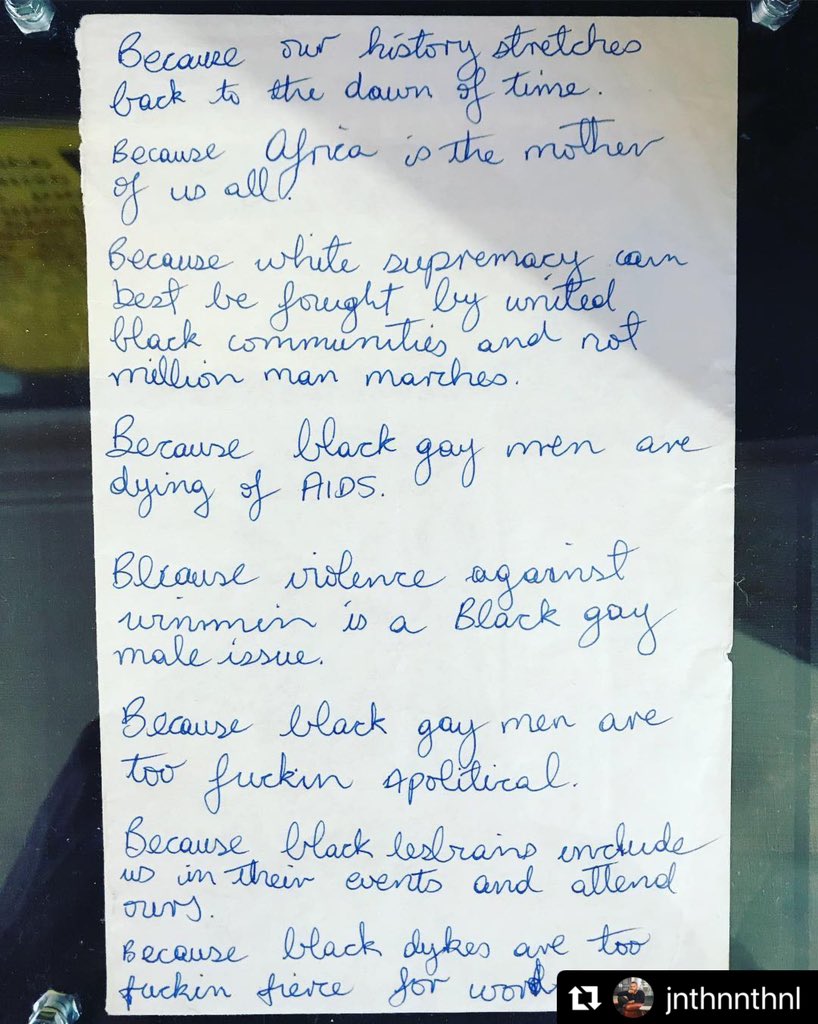 Because our history stretches
back to the dawn of time.
Because Africa is the mother
of us all.
Because white supremacy can
best be fought by united
black communities and not
million man marches.
Because black gay men are
dying of AIDS.
Because violence against
winmin is a Black gay
male issue.
Because black gay men are
too fuckin apolitical.
Because black lesbians include
us in their events and attend
ours.
Because black dykes are too
fuckin fierce for
jnthnnthnl